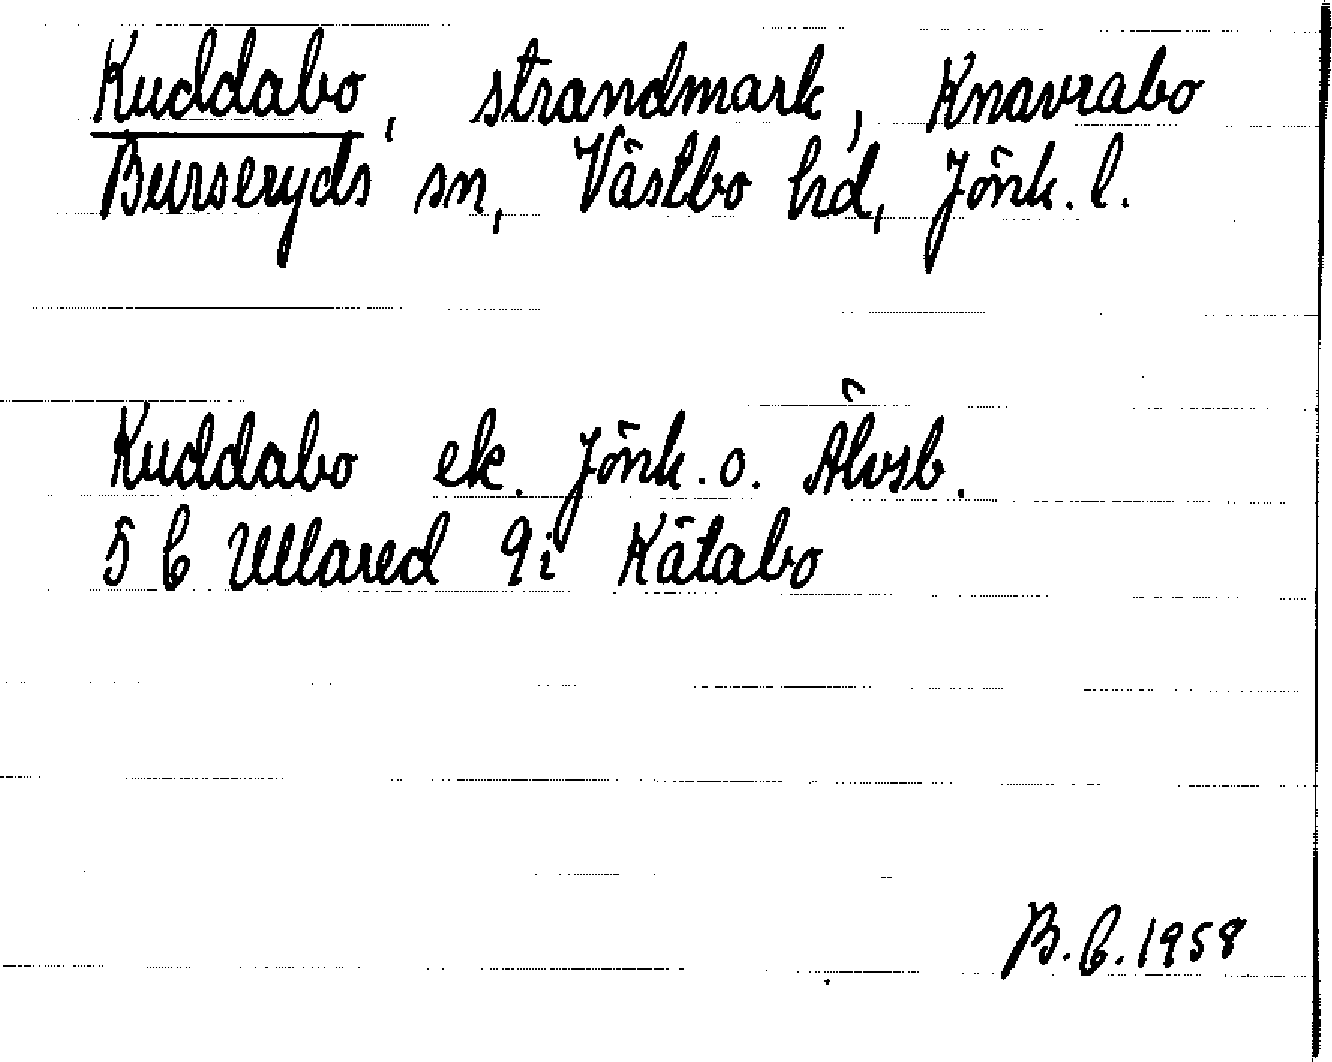 Kuddabo, strandmark, Knavrabo
Burseryds sn, Västbo hd, Jönk. l.
Kuddabo ek. Jönk. o. Älvsb.
5 C Ullared 9i Kätabo
B.C. 1958